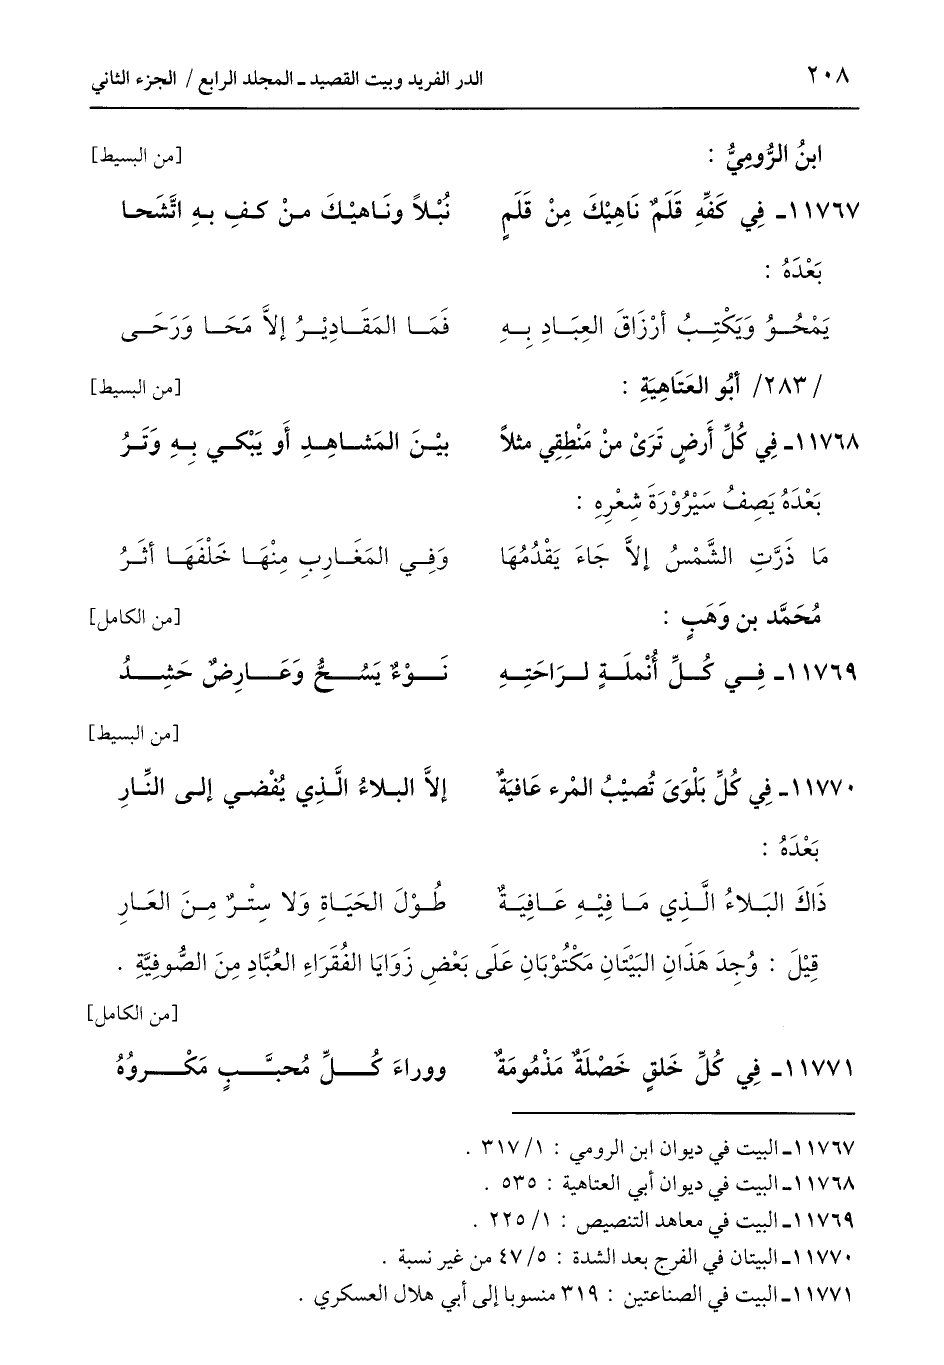 ٢٠٨ الدر الفريد وبيت القصيد ـ المجلد الرابع / الجزء الثاني
ابنُ الرُّومِيُّ : [من البسيط]
١١٧٦٧ـ فِي كَفِّهِ قَلَمٌ نَاهِيْكَ مِنْ قَلَمٍ نُبْلاً ونَاهيْكَ منْ كفِ بهِ اتَّشَحا
بَعْدَهُ :
يَمْحُو وَيَكْتِبُ أَرْزَاقَ العِبَادِ بِهِ فَمَا المَقَادِيْرُ إلاَّ مَحَا وَرَحَى
/٢٨٣/ أَبُو العَتَاهِيَةِ : [من البسيط]
١١٧٦٨ـ فِي كُلِّ أَرضٍ تَرَىْ منْ مَنْطِقِي مثلاً بيْنَ المَشاهدِ أَو يَبْكي بهِ وَتَرُ
بَعْدَهُ يَصِفُ سَيْرُوْرَةَ شِعْرِهِ :
مَا ذَرَّتِ الشَّمْسُ إلاَّ جَاءَ يَقْدُمُهَا وَفِي المَغَاربِ مِنْهَا خَلْفَهَا أثَرُ
مُحَمَّد بن وَهَبٍ : [من الكامل]
١١٧٦٩ـ فِي كُلِّ أُنْملَةٍ لرَاحَتِهِ نَوْءٌ يَسُحُّ وعَارضٌ حَشِدُ
[من البسيط]
١١٧٧٠ـ فِي كُلِّ بَلْوَىَ تُصيْبُ المْرء عَافيَةٌ إلاَّ البلاءُ الَّذِي يُفْضي إلى النَّارِ
بَعْدَهُ :
ذَاكَ البَلاءُ الَّذِي مَا فِيْهِ عَافِيَةٌ طُوْلَ الحَيَاةِ وَلا سِتْرٌ مِنَ العَارِ
قِيْلَ : وُجِدَ هَذَانِ البَيْتَانِ مَكْتُوْبَانِ عَلَى بَعْضِ زَوَايَا الفُقَرَاءِ العُبَّادِ مِنَ الصُّوفِيَّةِ .
[من الكامل]
١١٧٧١ـ فِي كُلِّ خَلقٍ خَصْلَةٌ مَذْمُومَةٌ ووراءَ كُلِّ مُحبَّبٍ مَكْروُهُ
١١٧٦٧ـ البيت في ديوان ابن الرومي : ١/ ٣١٧ .
١١٧٦٨ـ البيت في ديوان أبي العتاهية : ٥٣٥ .
١١٧٦٩ـ البيت في معاهد التنصيص : ١/ ٢٢٥ .
١١٧٧٠ـ البيتان في الفرج بعد الشدة : ٥/ ٤٧ من غير نسبة .
١١٧٧١ـ البيت في الصناعتين : ٣١٩ منسوبا إلى أبي هلال العسكري .